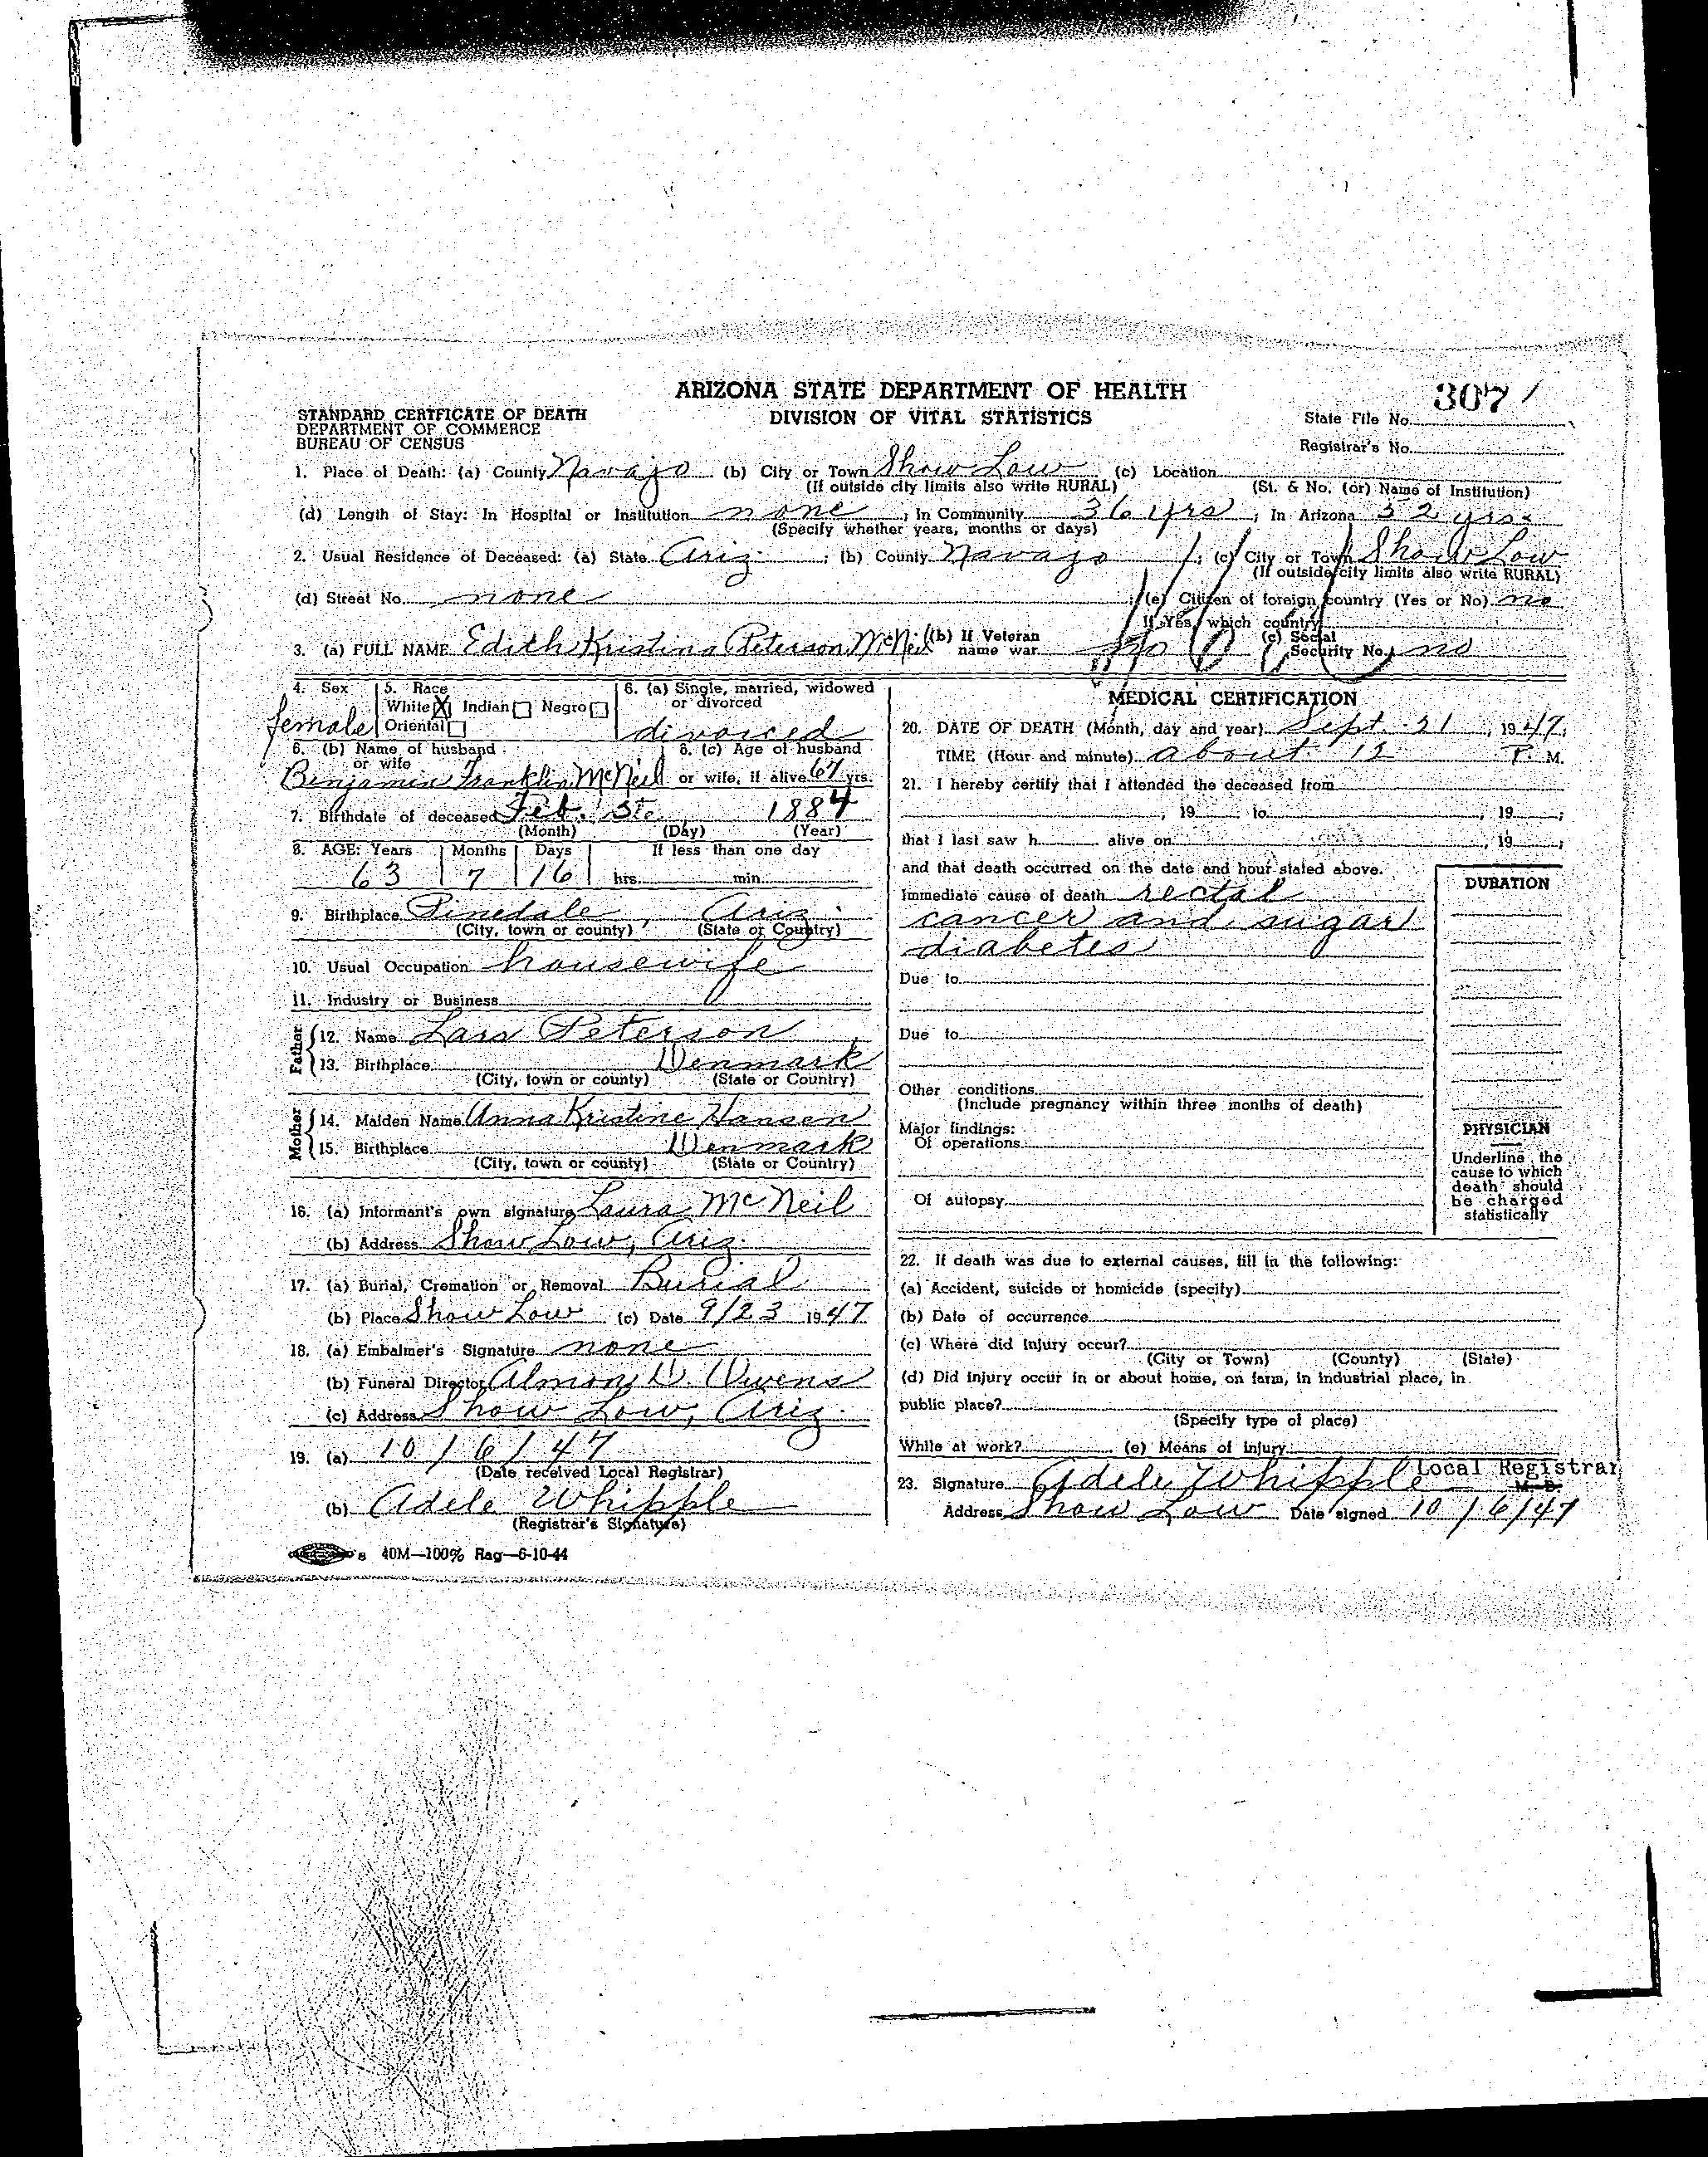 ARIZONA STATE DEPARTMENT OF HEALTH
DIVISION OF VITAL STATISTICS
STANDARD CERTFICATE OF DEATH
DEPARTMENT OF COMMERCE
BUREAU OF CENSUS
307
State File No.
Registrar's No.
1. Place of Death: (a) County Navajo (b) City or Town Show Low (c) Location
(If outside city limits also write RURAL) (St. & No. (or) Name of Institution)
(d) Length of Stay: In Hospital or Institution none ; In Community 36 yrs ; In Arizona 52 yrs.
(Specify whether years, months or days)
2. Usual Residence of Deceased: (a) State Ariz. ; (b) County Navajo ; (c) City or Town Show Low
(If outside city limits also write RURAL)
(d) Street No. none ; (e) Citizen of foreign country (Yes or No) no
If Yes, which country
3. (a) FULL NAME Edith Kristina Peterson McNeil (b) If Veteran name war no (c) Social Security No. no
4. Sex female
5. Race White X Indian Negro Oriental
6. (a) Single, married, widowed or divorced divorced
6. (b) Name of husband or wife Benjamin Franklin McNeil
6. (c) Age of husband or wife, if alive 67 yrs.
7. Birthdate of deceased Feb. 5te 1884
(Month) (Day) (Year)
8. AGE: Years Months Days If less than one day
63 7 16 hrs. min.
9. Birthplace Pinedale, Ariz.
(City, town or county) (State or Country)
10. Usual Occupation housewife
11. Industry or Business
Father
12. Name Lars Peterson
13. Birthplace Denmark
(City, town or county) (State or Country)
Mother
14. Maiden Name Anna Kristine Hansen
15. Birthplace Denmark
(City, town or county) (State or Country)
16. (a) Informant's own signature Laura McNeil
(b) Address Show Low, Ariz.
17. (a) Burial, Cremation or Removal Burial
(b) Place Show Low (c) Date 9/23 1947
18. (a) Embalmer's Signature none
(b) Funeral Director Almon D. Owens
(c) Address Show Low, Ariz.
19. (a) 10/6/47
(Date received Local Registrar)
(b) Adele Whipple
(Registrar's Signature)
40M—100% Rag—6-10-44
MEDICAL CERTIFICATION
20. DATE OF DEATH (Month, day and year) Sept. 21, 1947
TIME (Hour and minute) about 12 P. M.
21. I hereby certify that I attended the deceased from
, 19 to , 19 ;
that I last saw h alive on , 19 ;
and that death occurred on the date and hour stated above.
Immediate cause of death rectal
cancer and sugar
diabetes
Due to
Due to
Other conditions
(Include pregnancy within three months of death)
Major findings:
Of operations
Of autopsy
DURATION
PHYSICIAN
Underline the
cause to which
death should
be charged
statistically
22. If death was due to external causes, fill in the following:
(a) Accident, suicide or homicide (specify)
(b) Date of occurrence
(c) Where did injury occur?
(City or Town) (County) (State)
(d) Did injury occur in or about home, on farm, in industrial place, in
public place?
(Specify type of place)
While at work? (e) Means of injury
23. Signature Adele Whipple Local Registrar
M. D.
Address Show Low Date signed 10/6/47